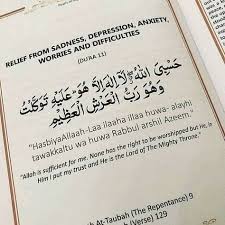 RELIEF FROM SADNESS, DEPRESSION, ANXIETY,
WORRIES AND DIFFICULTIES
(DU'RA 11)
حَسْبِيَ اللَّهُ لَا إِلَهَ إِلَّا هُوَ عَلَيْهِ تَوَكَّلْتُ
وَهُوَ رَبُّ الْعَرْشِ الْعَظِيمِ
"HasbiyaAllaah-Laa ilaaha illaa huwa- alayhi
tawakkaltu wa huwa Rabbul arshil Azeem."
"Allah is sufficient for me. None has the right to be worshipped but He, in
Him I put my trust and He is the Lord of The Mighty Throne."
At-Taubah (The Repentance) 9
Verse) 129